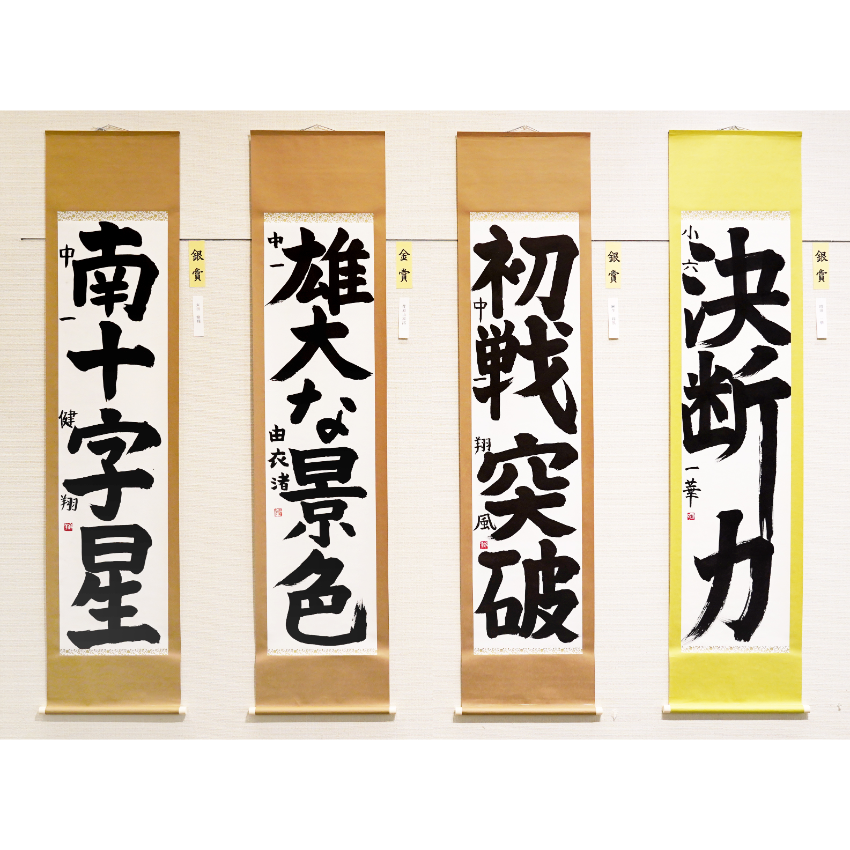 南十字星
中一
健翔
銀賞
雄大な景色
中一
由衣渚
金賞
初戦突破
中一
翔風
銀賞
決断力
小六
一華
銀賞